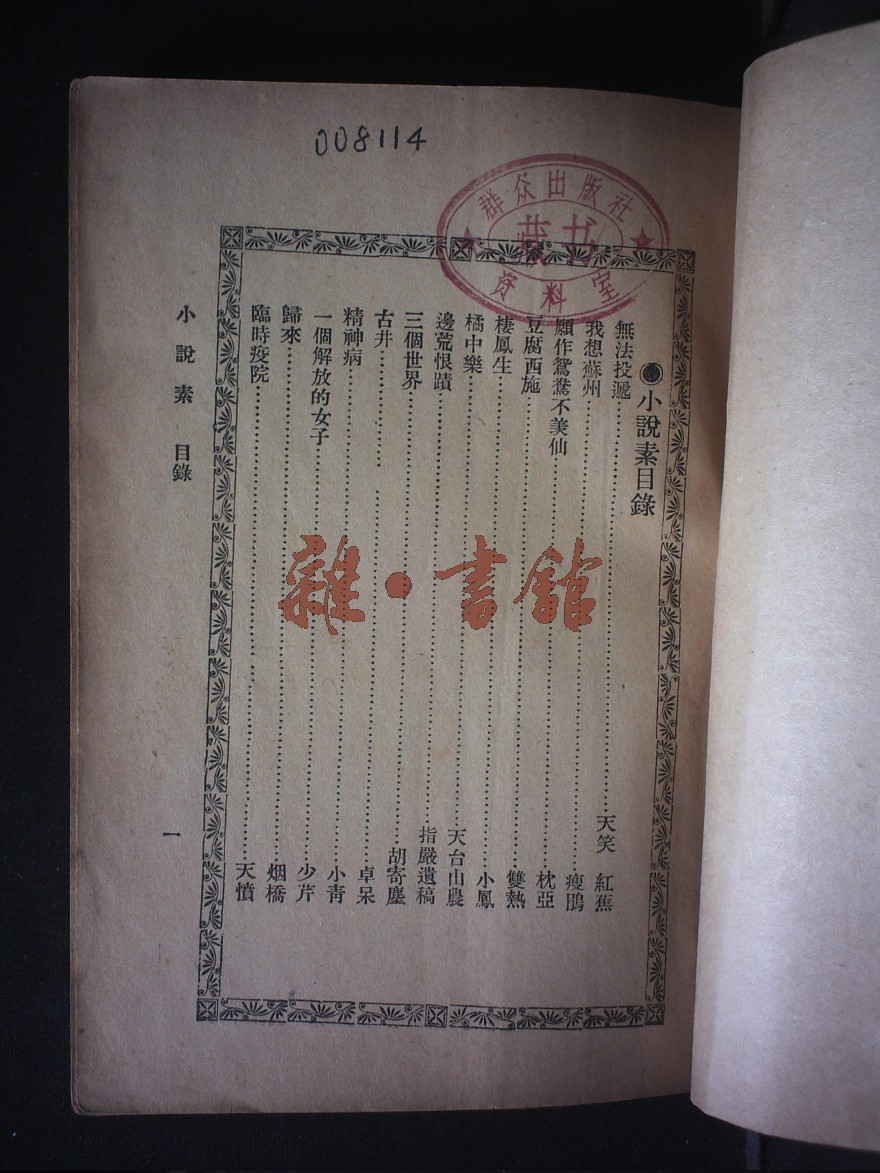 008114
群众出版社
藏书
资料室
小說素目錄
無法投遞 天笑 紅蕉
我想蘇州 瘦鵑
願作鴛鴦不羨仙 枕亞
豆腐西施 雙熱
棲鳳生 小鳳
橘中樂 天台山農
邊荒恨蹟 指嚴遺稿
三個世界 胡寄塵
古井 卓呆
精神病 小靑
一個解放的女子 少芹
歸來 烟橋
臨時疫院 天憤
小說素 目錄
一
雜·書館